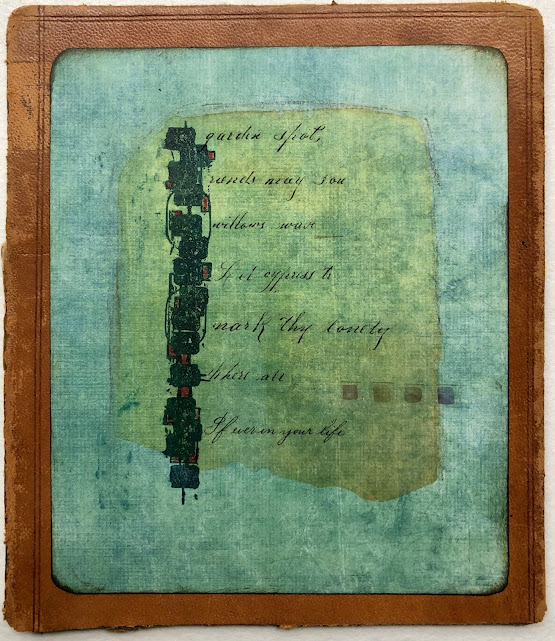 garden spot,
may you
willows wave
cypress to
mark thy lonely
Where are
If ever in your life